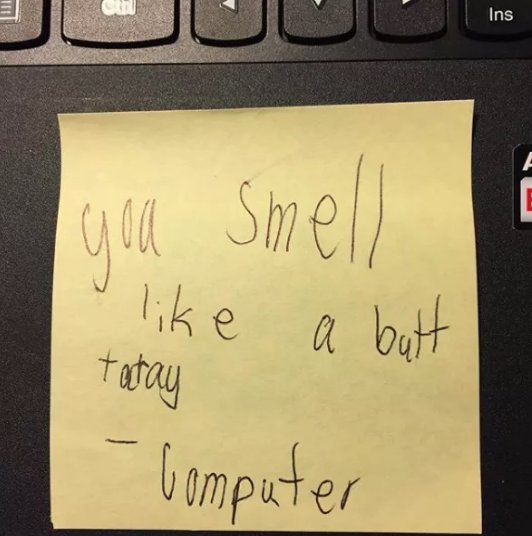 Ctrl
Ins
you smell
like a butt
today
- Computer